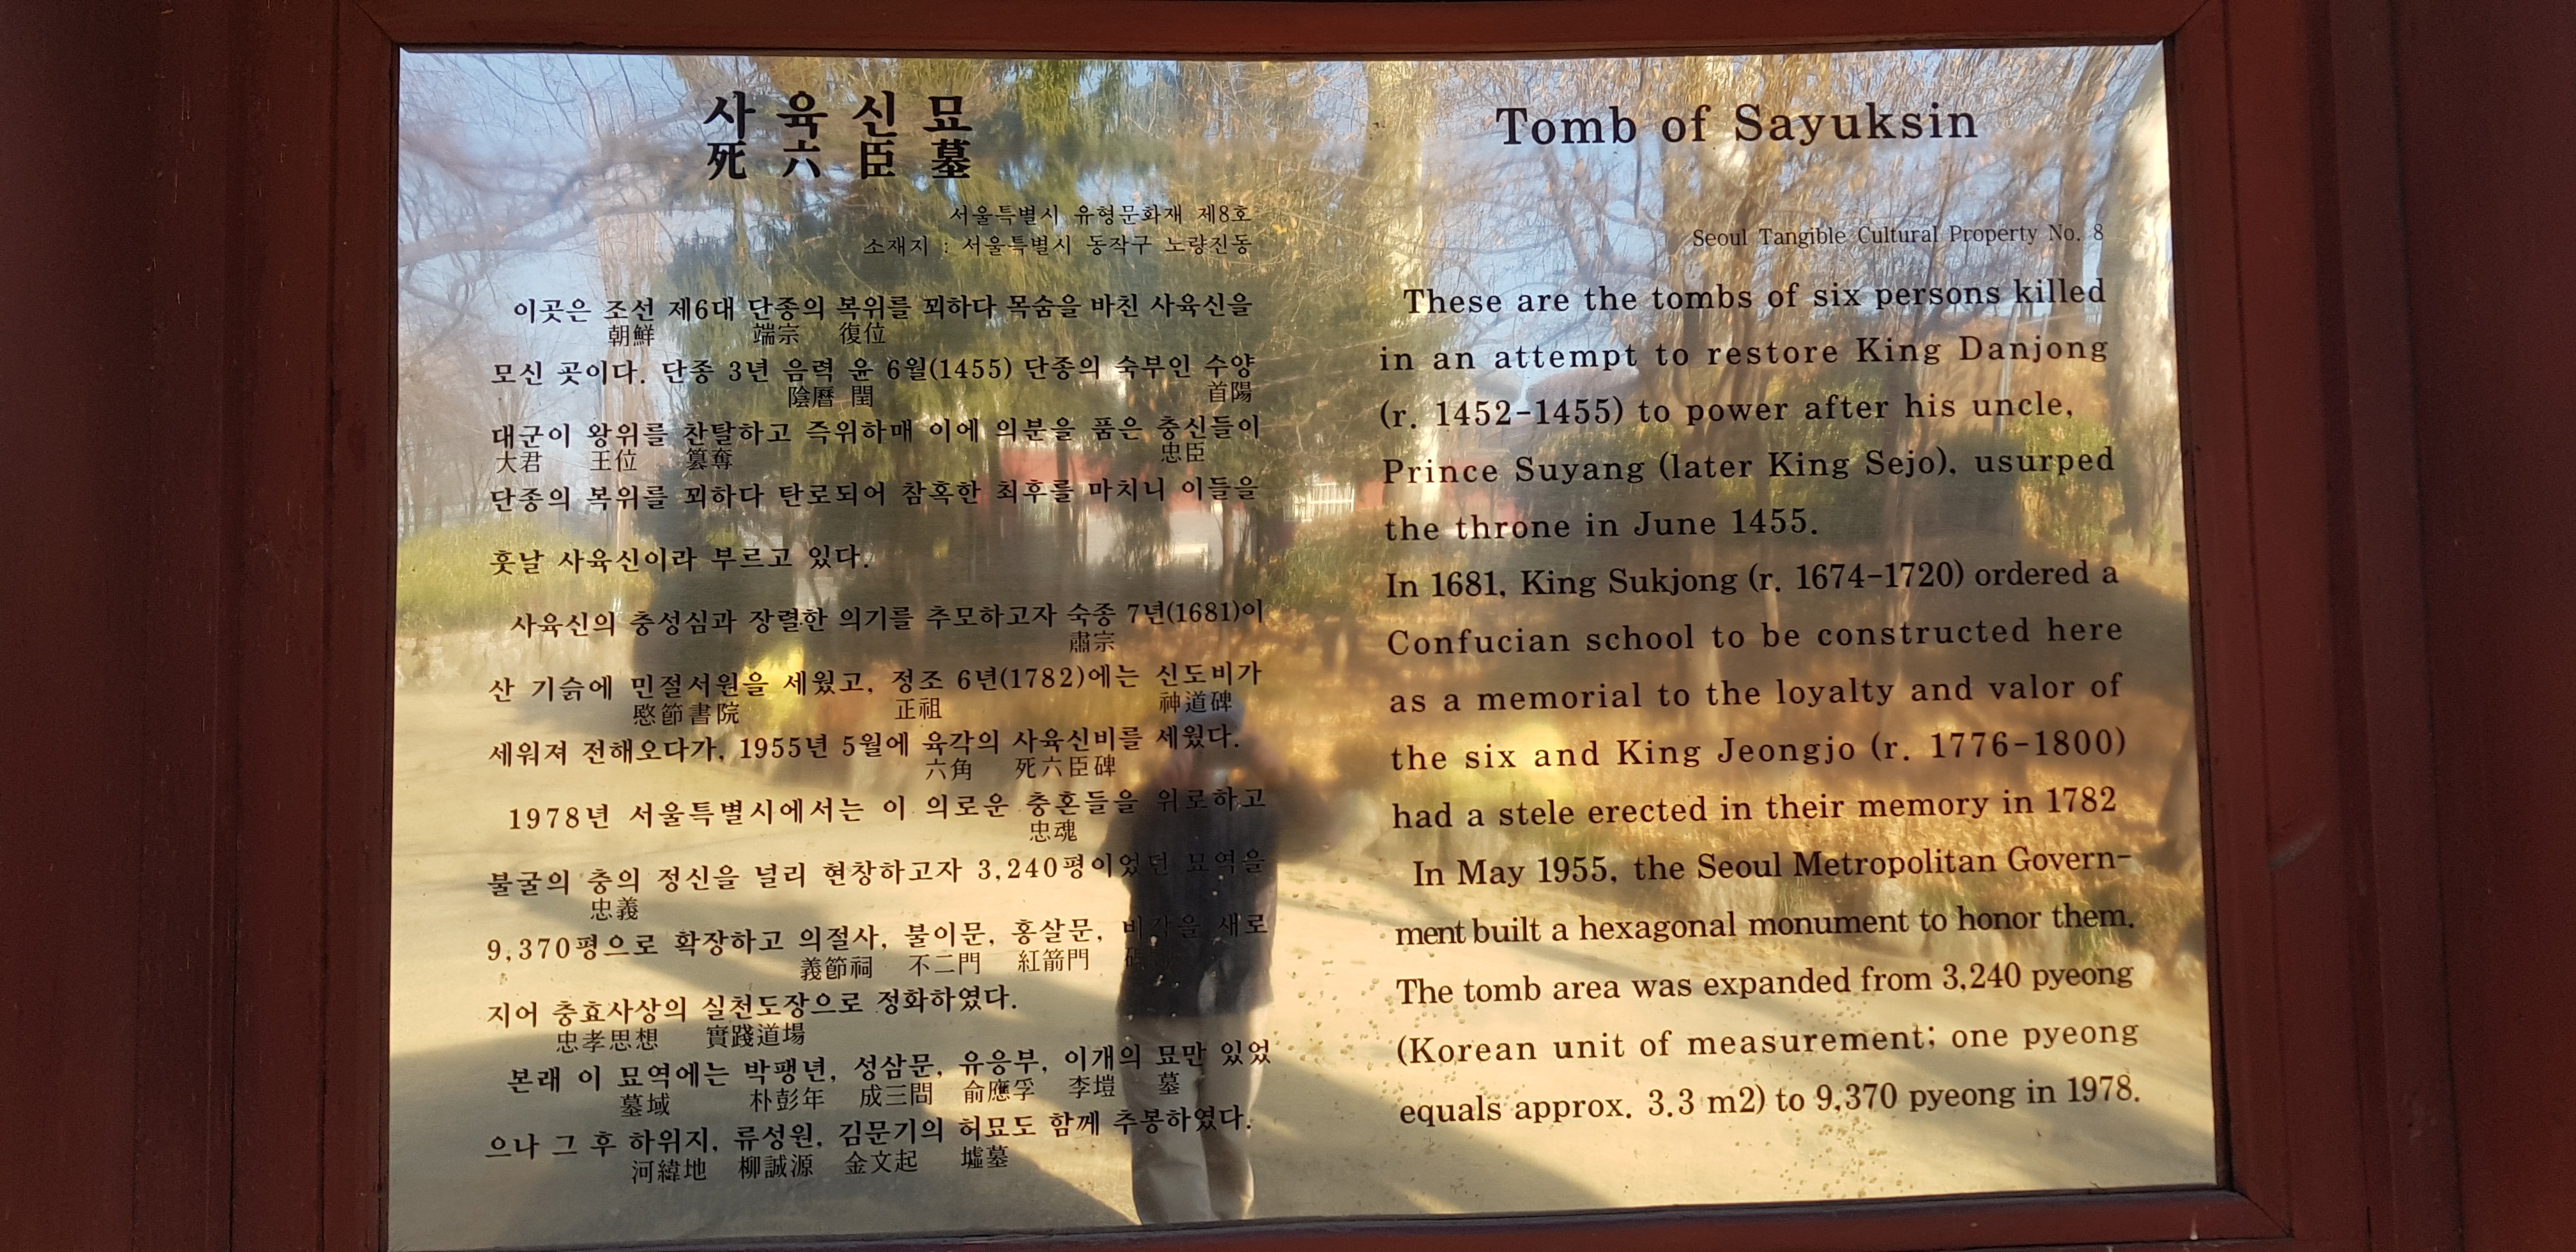 사육신묘
死六臣墓
서울특별시 유형문화재 제8호
소재지 : 서울특별시 동작구 노량진동
이곳은 조선 제6대 단종의 복위를 꾀하다 목숨을 바친 사육신을
朝鮮 端宗 復位
모신 곳이다. 단종 3년 음력 윤 6월(1455) 단종의 숙부인 수양
陰曆 閏 首陽
대군이 왕위를 찬탈하고 즉위하매 이에 의분을 품은 충신들이
大君 王位 簒奪 忠臣
단종의 복위를 꾀하다 탄로되어 참혹한 최후를 마치니 이들을
훗날 사육신이라 부르고 있다.
사육신의 충성심과 장렬한 의기를 추모하고자 숙종 7년(1681)이
肅宗
산 기슭에 민절서원을 세웠고, 정조 6년(1782)에는 신도비가
愍節書院 正祖 神道碑
세워져 전해오다가, 1955년 5월에 육각의 사육신비를 세웠다.
六角 死六臣碑
1978년 서울특별시에서는 이 의로운 충혼들을 위로하고
忠魂
불굴의 충의 정신을 널리 현창하고자 3,240평이었던 묘역을
忠義
9,370평으로 확장하고 의절사, 불이문, 홍살문, 비각을 새로
義節祠 不二門 紅箭門
지어 충효사상의 실천도장으로 정화하였다.
忠孝思想 實踐道場
본래 이 묘역에는 박팽년, 성삼문, 유응부, 이개의 묘만 있었
墓域 朴彭年 成三問 兪應孚 李塏 墓
으나 그 후 하위지, 류성원, 김문기의 허묘도 함께 추봉하였다.
河緯地 柳誠源 金文起 墟墓
Tomb of Sayuksin
Seoul Tangible Cultural Property No. 8
These are the tombs of six persons killed
in an attempt to restore King Danjong
(r. 1452-1455) to power after his uncle,
Prince Suyang (later King Sejo), usurped
the throne in June 1455.
In 1681, King Sukjong (r. 1674-1720) ordered a
Confucian school to be constructed here
as a memorial to the loyalty and valor of
the six and King Jeongjo (r. 1776-1800)
had a stele erected in their memory in 1782
In May 1955, the Seoul Metropolitan Govern-
ment built a hexagonal monument to honor them.
The tomb area was expanded from 3,240 pyeong
(Korean unit of measurement; one pyeong
equals approx. 3.3 m2) to 9,370 pyeong in 1978.